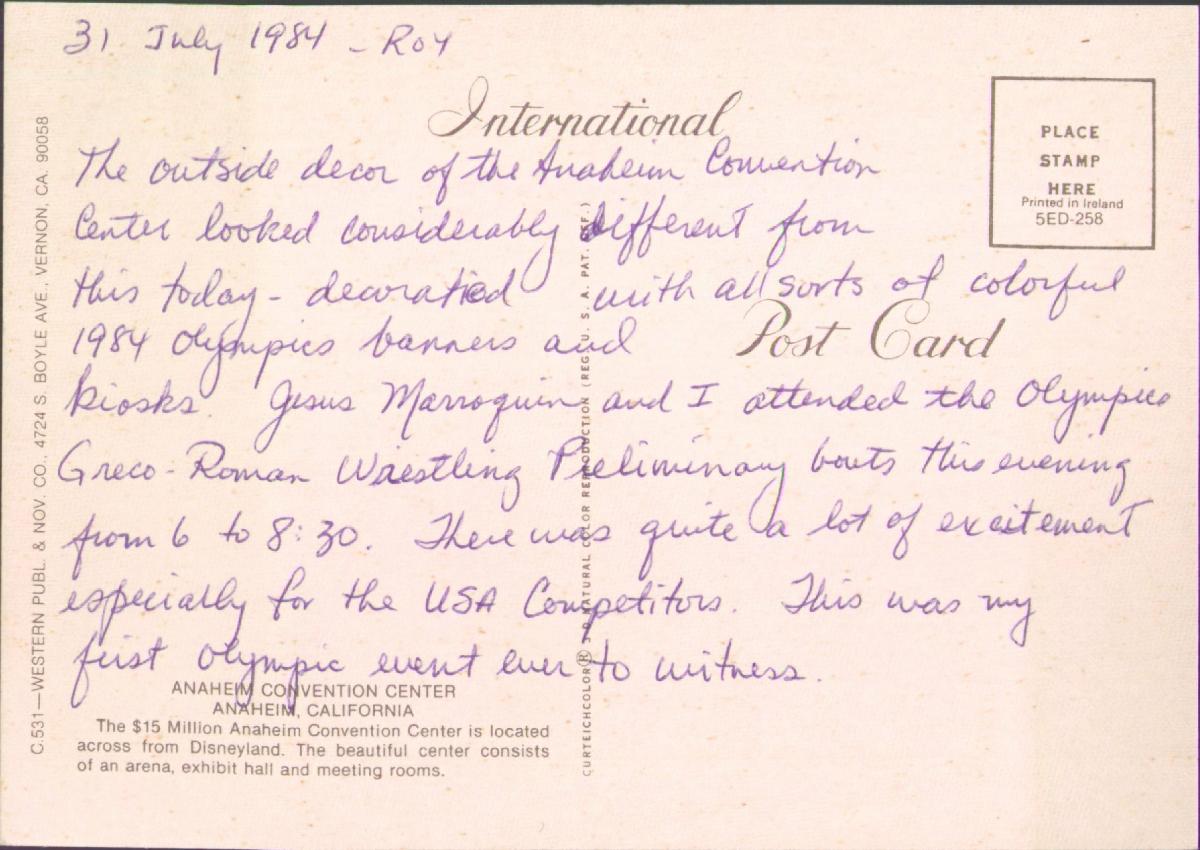 31 July 1984 - Roy
International
PLACE
STAMP
HERE
Printed in Ireland
5ED-258
The outside decor of the Anaheim Convention
Center looked considerably different from
this today - decorated with all sorts of colorful
1984 Olympics banners and
Post Card
kiosks. Jesus Marroquin and I attended the Olympics
Greco-Roman Wrestling Preliminary bouts this evening
from 6 to 8:30. There was quite a lot of excitement
especially for the USA Competitors. This was my
first Olympic event ever to witness.
ANAHEIM CONVENTION CENTER
ANAHEIM, CALIFORNIA
The $15 Million Anaheim Convention Center is located
across from Disneyland. The beautiful center consists
of an arena, exhibit hall and meeting rooms.
C.531—WESTERN PUBL. & NOV. CO., 4724 S. BOYLE AVE., VERNON, CA. 90058
CURTEICHCOLOR® 3-D NATURAL COLOR REPRODUCTION (REG. U. S. A. PAT. OFF.)